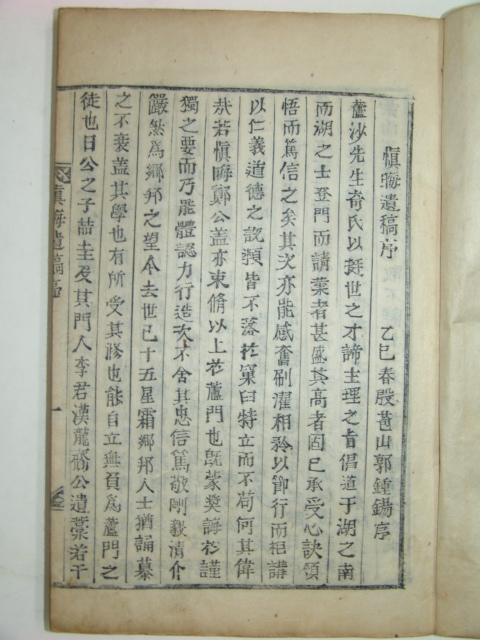 愼晦遺稿序
乙巳春殷䓁山郭鍾錫序
蘆沙先生奇氏以挺世之才諦主理之旨倡道于湖之南
而湖之士登門而請業者甚盛其高者固已承受心訣領
悟而篤信之矣其次亦能感奮刷濯相矜以飭行而拒講
以仁義道德之說類皆不落於窠臼特立而不苟何其偉
㢤若愼晦鄭公盖亦東脩以上於蘆門也旣蒙奬誨於謹
獨之要而乃能體認力行造次不舍其忠信篤敬剛毅淸介
儼然爲鄕邦之望今去世已十五星霜鄕邦人士猶誦慕
之不衰盖其學也有所受其修也能自立無負爲蘆門之
徒也日公之子喆圭及其門人李君漢龍裒公遺藁若干
愼晦遺稿序
一